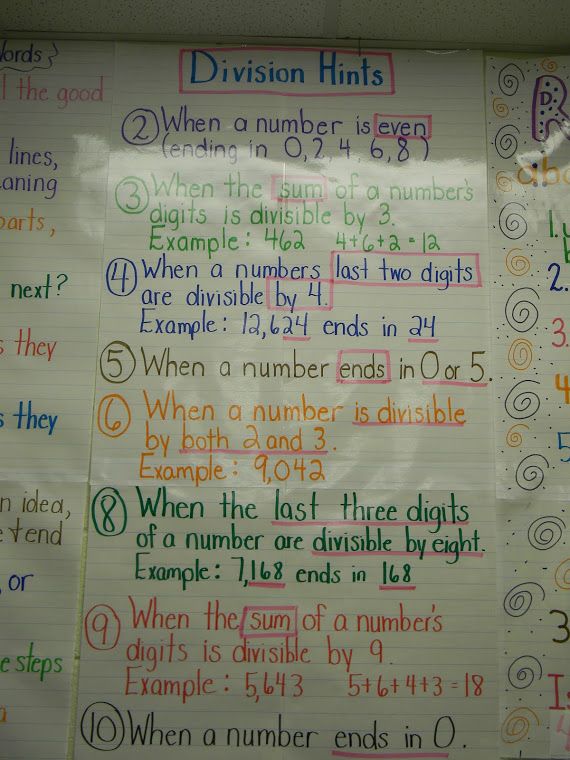 Words
l the good
lines,
aning
parts,
next?
s they
s they
n idea,
etend
or
e steps
a
Division Hints
② When a number is even
(ending in 0, 2, 4, 6, 8)
③ When the sum of a number's
digits is divisible by 3.
Example: 462 4+6+2=12
④ When a numbers last two digits
are divisible by 4.
Example: 12,624 ends in 24
⑤ When a number ends in 0 or 5.
⑥ When a number is divisible
by both 2 and 3.
Example: 9,042
⑧ When the last three digits
of a number are divisible by eight.
Example: 7,168 ends in 168
⑨ When the sum of a number's
digits is divisible by 9.
Example: 5,643 5+6+4+3=18
⑩ When a number ends in 0.
R
abo
1.
2.
3.
4
5
3